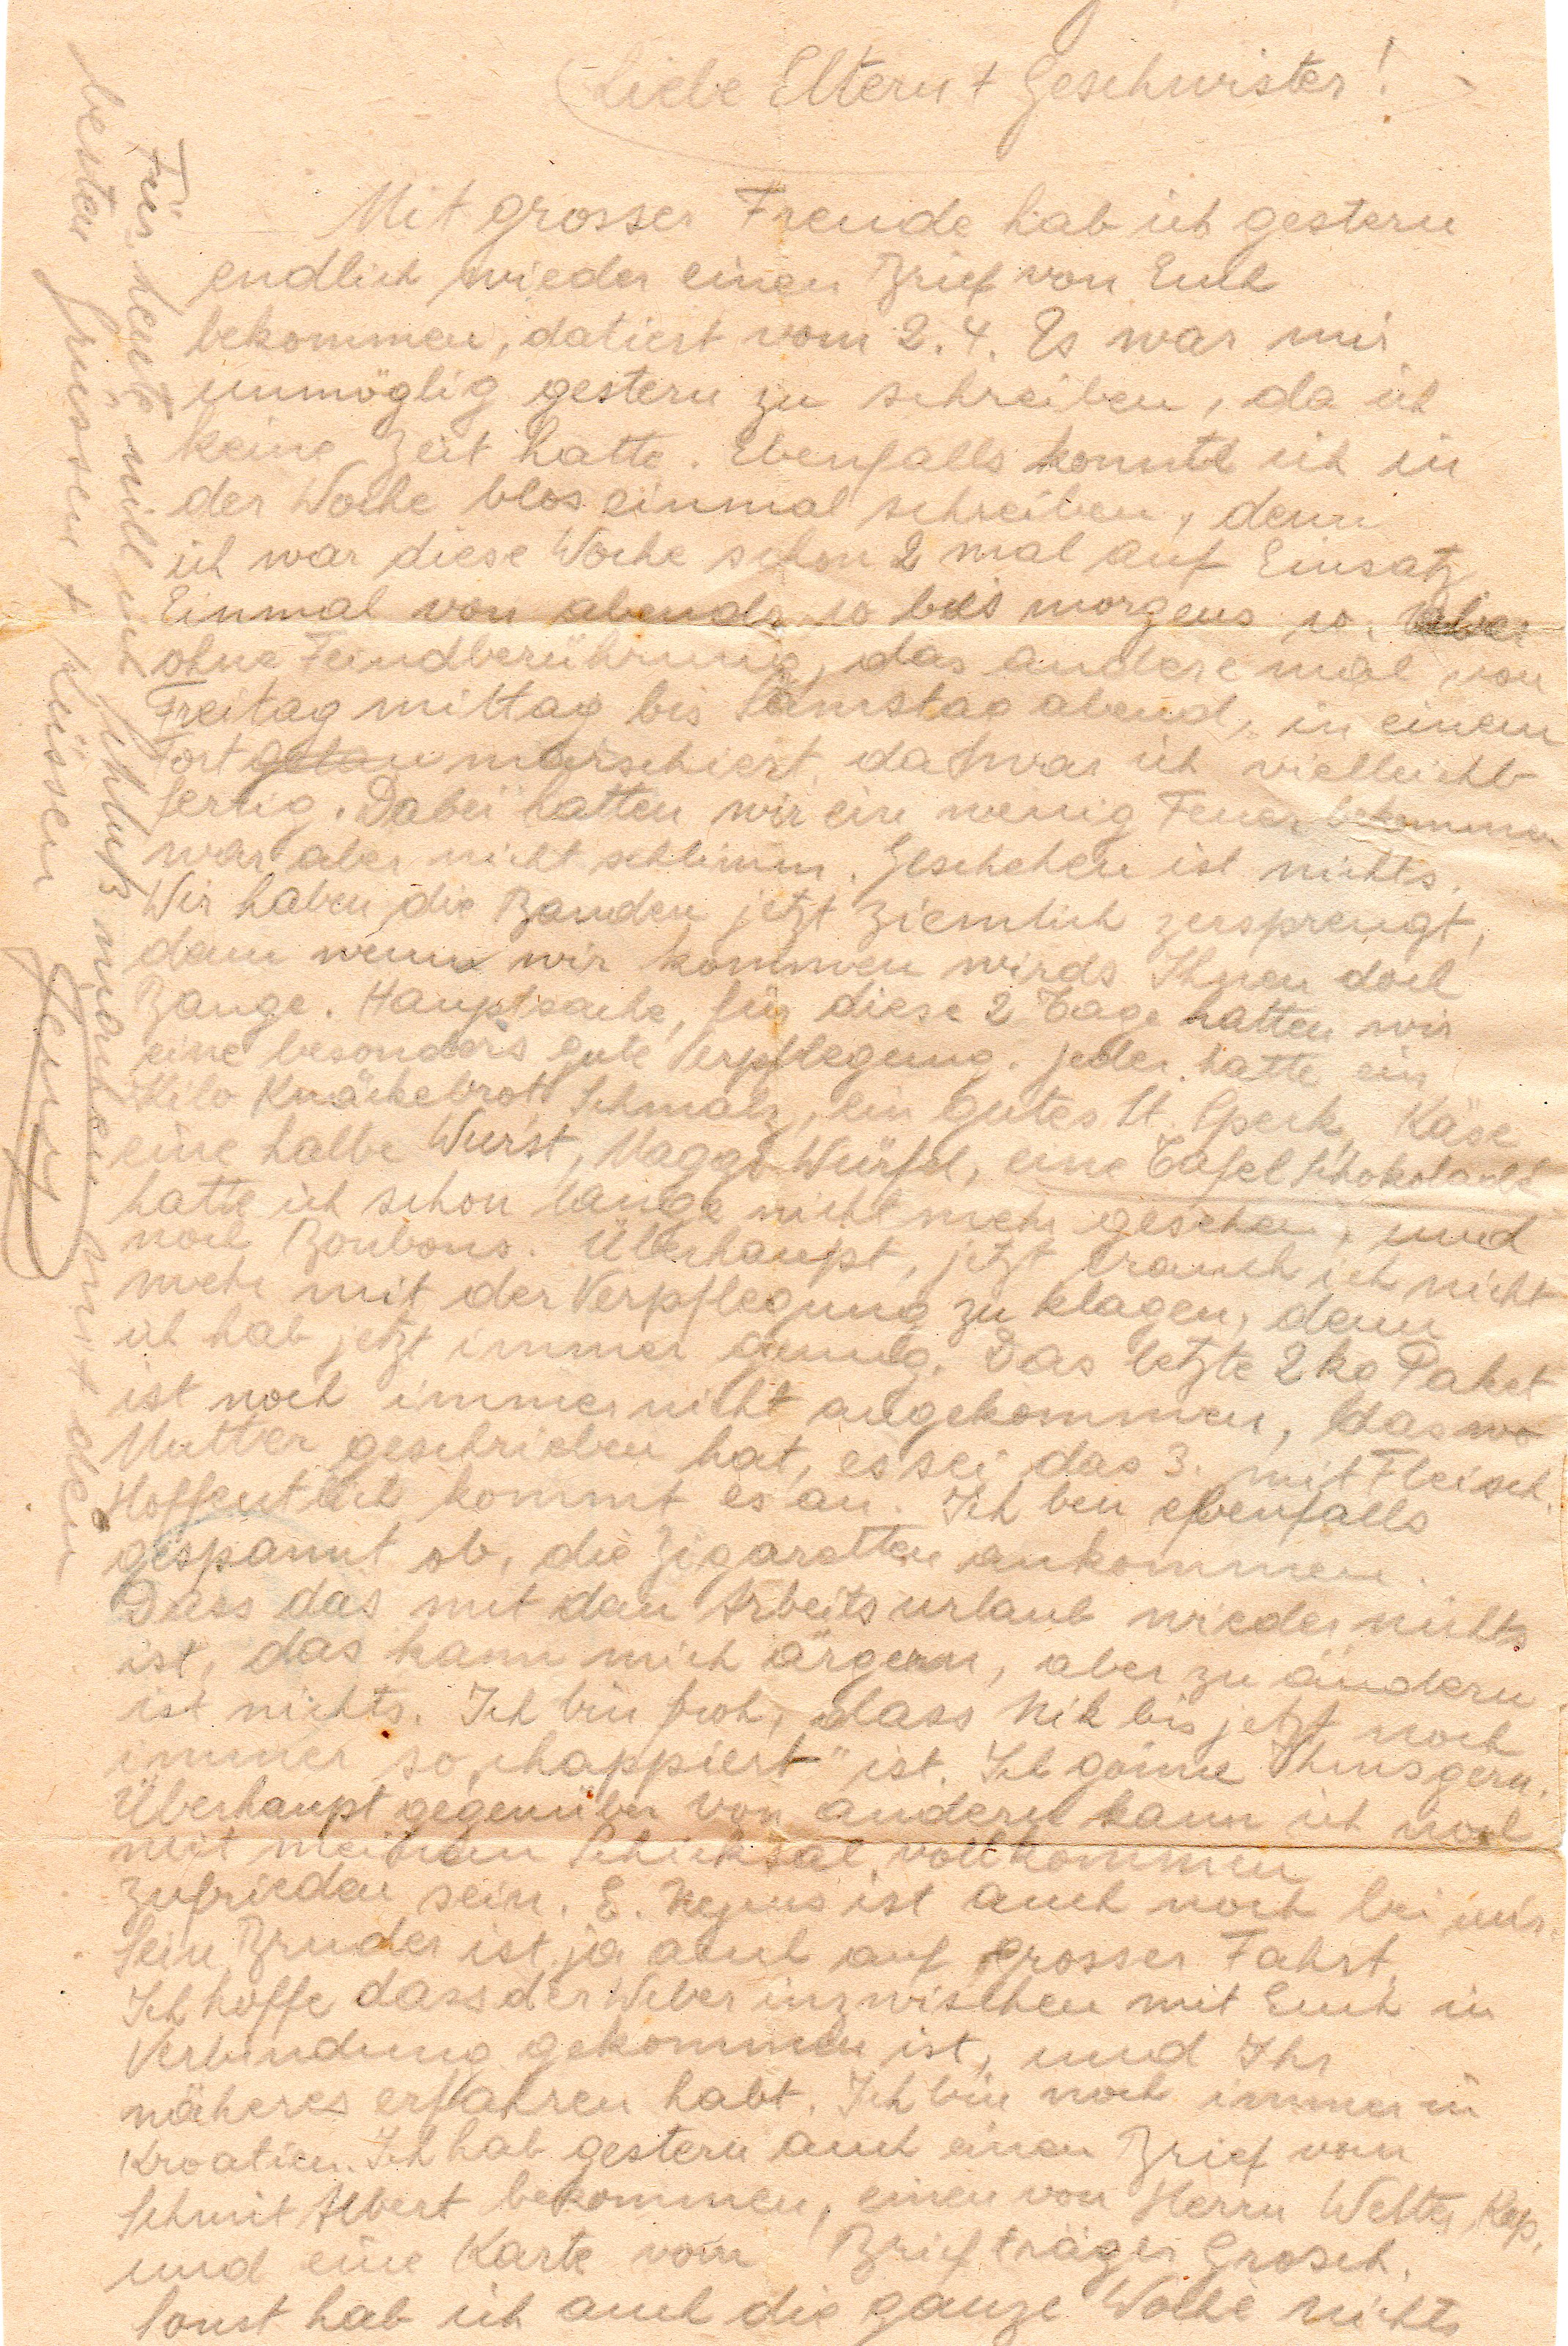 Liebe Eltern + Geschwister!
Mit grosser Freude hab ich gestern
endlich wieder einen Brief von Euch
bekommen, datiert vom 2.4. Es war mir
unmöglig gestern zu schreiben, da ich
keine Zeit hatte. Ebenfalls konnte ich in
der Woche blos einmal schreiben, denn
ich war diese Woche schon 2 mal auf Einsatz
Einmal von abends 10 bis morgens 10. Aber
ohne Feindberührung, das andere mal von
Freitag mittag bis Samstag abend, in einem
fort marschiert, da war ich vielleicht
fertig. Dabei hatten wir ein wenig Feuer bekommen
war aber nicht schlimm. Geschehen ist nichts.
Wir haben die Banden jetzt ziemlich zersprengt,
denn wenn wir kommen wirds Ihnen doch
Bange. Hauptsache, für diese 2 Tage hatten wir
eine besonders gute Verpflegung. jeder hatte ein
Kilo Knäckebrot, Schmalz, ein gutes St. Speck, Käse
eine halbe Wurst, Maggi Würfel, eine Tafel Schokolade
hatte ich schon lange nicht mehr gesehen, und
noch Bonbons. Überhaupt, jetzt brauch ich nicht
mehr mit der Verpflegung zu klagen, denn
ich hab jetzt immer genug. Das letzte 2 kg Paket
ist noch immer nicht angekommen, das wo
Mutter geschrieben hat, es sei das 3. mit Fleisch.
Hoffentlich kommt es an. Ich bin ebenfalls
gespannt ob, die Zigaretten ankommen.
Dass das mit dem Arbeitsurlaub wieder nichts
ist, das kann mich ärgern, aber zu ändern
ist nichts. Ich bin froh, dass Nik bis jetzt noch
immer so „chappiert" ist. Ich gönne Ihms gern.
Überhaupt gegenüber von andern kann ich noch
mit meinem Schicksal vollkommen
zufrieden sein. E. ist auch noch bei mir.
Sein Bruder ist ja auch auf grosser Fahrt.
Ich hoffe dass der Weber inzwischen mit Euch in
Verbindung gekommen ist, und Ihr
näheres erfahren habt. Ich bin noch immer in
Kroatien. Ich hab gestern auch einen Brief von
Schmit Albert bekommen, einen von Herrn Welter Kap.
und eine Karte vom Briefträger Grosch.
Sonst hab ich auch die ganze Woche nichts
Für heute will ich Schluß machen mit den
besten Grüssen + Küssen